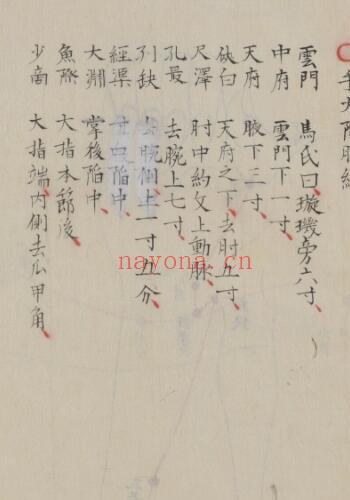 手太陰肺經
雲門 馬氏曰璇璣旁六寸、
中府 雲門下一寸、
天府 腋下三寸、
俠白 天府之下、去肘五寸、
尺澤 肘中約文上動脉、
孔最 去腕上七寸、
列缺 去腕側上一寸五分、
經渠 寸口陷中、
大淵 掌後陷中、
魚際 大指本節後、
少商 大指端、內側去瓜甲角、
nayona.cn